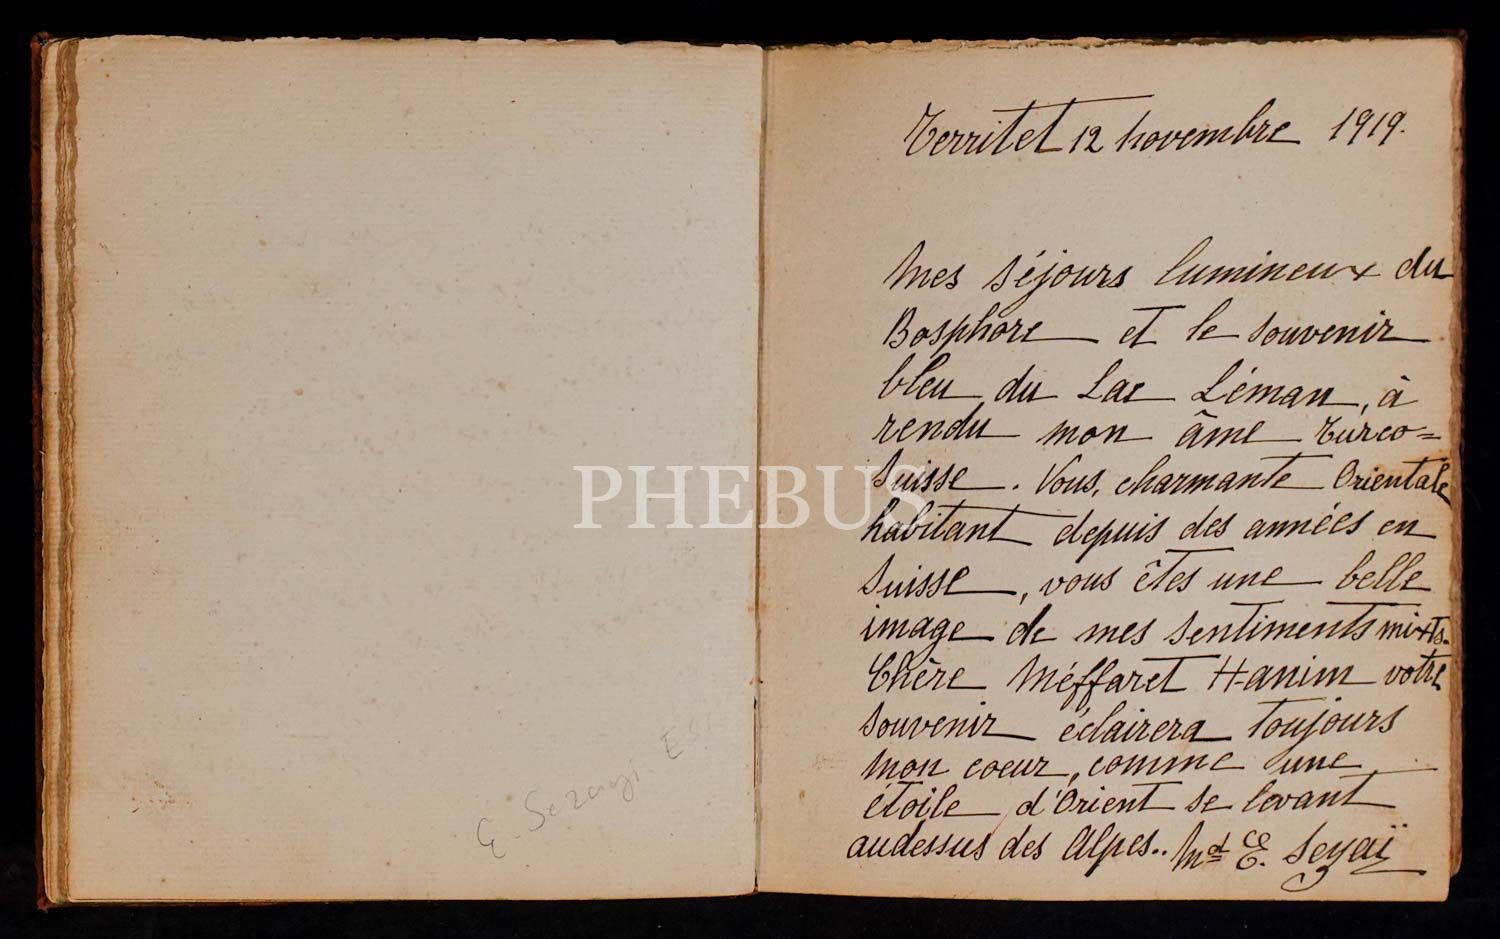 Territet 12 novembre 1919.
Mes séjours lumineux du
Bosphore et le souvenir
bleu du Lac Léman, à
rendu mon âme Turco=
Suisse. Vous, charmante Orientale
habitant depuis des années en
Suisse, vous êtes une belle
image de mes sentiments mixts.
Chère Méffaret Hanim votre
souvenir éclairera toujours
mon coeur, comme une
étoile d'Orient se levant
audessus des Alpes.. Md E. Seyaï
E. Sezayi
PHEBUS